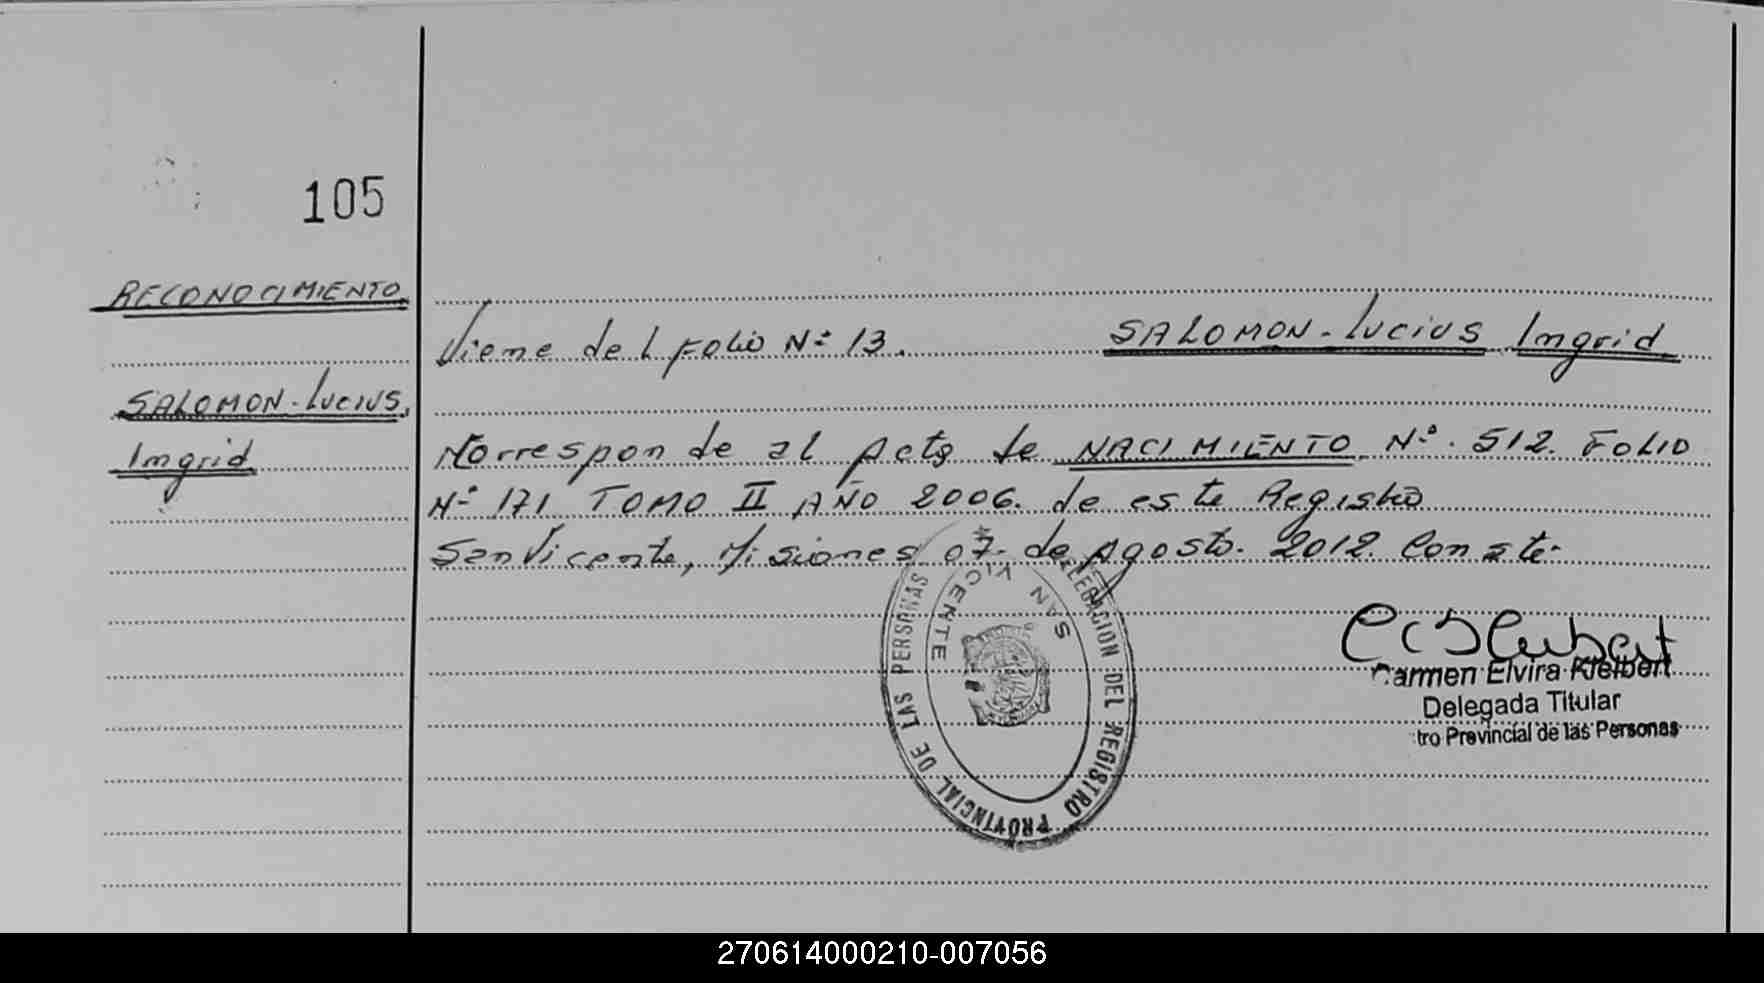 105
RECONOCIMIENTO
SALOMON-LUCIUS,
Ingrid
Viene del Folio Nº 13. SALOMON-LUCIUS Ingrid
Corresponde al Acta de NACIMIENTO Nº 512. FOLIO
Nº 171 TOMO II AÑO 2006. de este Registro
San Vicente, Misiones 07 de Agosto. 2012. Conste.
DELEGACION DEL REGISTRO PROVINCIAL DE LAS PERSONAS
SAN VICENTE
Carmen Elvira Kleibert
Delegada Titular
tro Provincial de las Personas
270614000210-007056